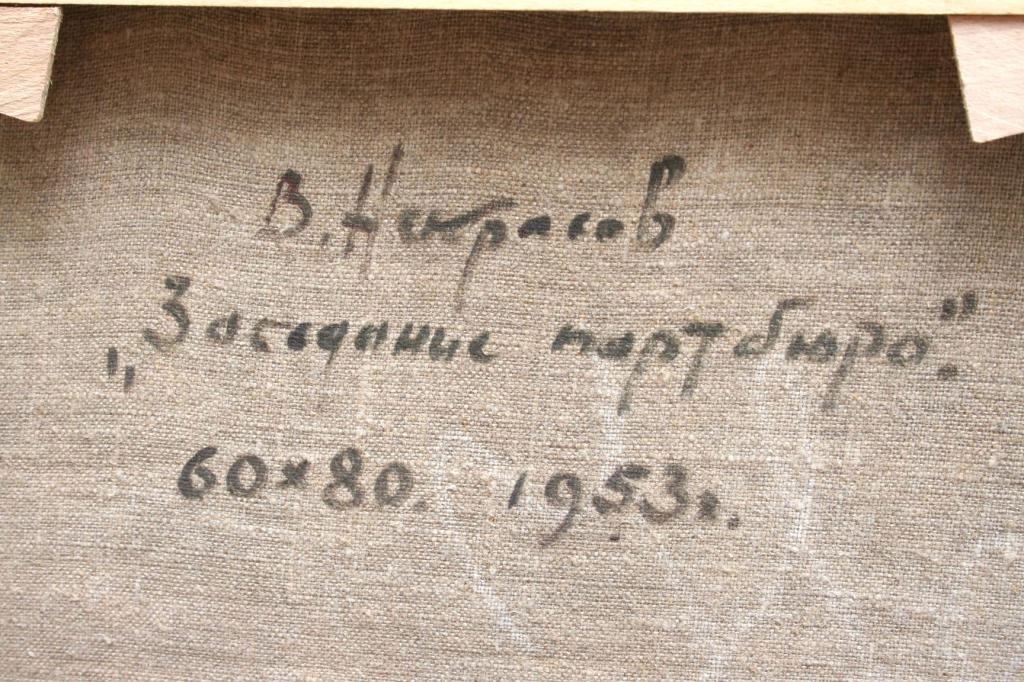 В. Некрасов
„Заседание партбюро."
60×80. 1953г.